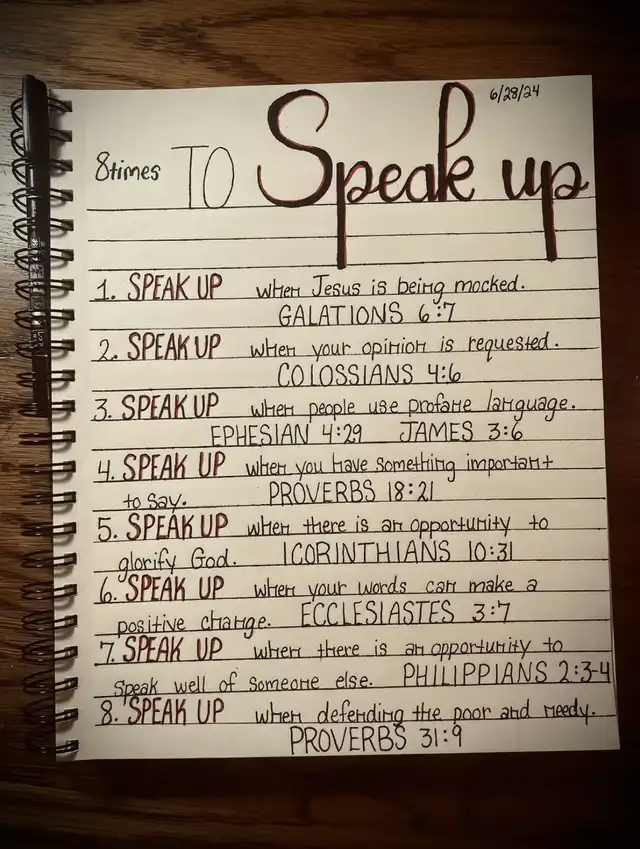 6/28/24
8 times TO Speak up
1. SPEAK UP when Jesus is being mocked.
GALATIONS 6:7
2. SPEAK UP when your opinion is requested.
COLOSSIANS 4:6
3. SPEAK UP when people use profane language.
EPHESIAN 4:29 JAMES 3:6
4. SPEAK UP when you have something important
to say. PROVERBS 18:21
5. SPEAK UP when there is an opportunity to
glorify God. 1CORINTHIANS 10:31
6. SPEAK UP when your words can make a
positive change. ECCLESIASTES 3:7
7. SPEAK UP when there is an opportunity to
speak well of someone else. PHILIPPIANS 2:3-4
8. SPEAK UP when defending the poor and needy.
PROVERBS 31:9